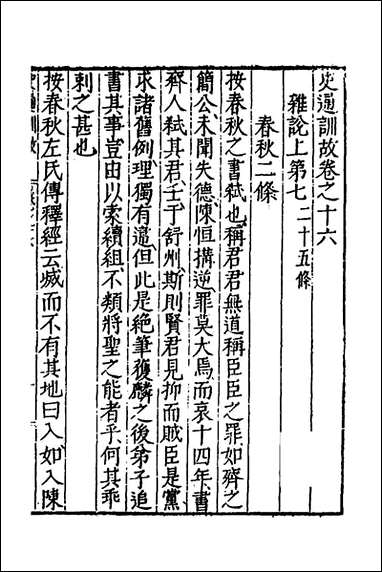 史通訓故卷之十六
雜說上第七 二十五條
春秋二條
按春秋之書弑也稱君君無道稱臣臣之罪如齊之
簡公未聞失德陳恒搆逆罪莫大焉而哀十四年書
齊人弑其君壬于舒州斯則賢君見抑而賊臣是黨
求諸舊例理獨有違但此是絶筆獲麟之後弟子追
書其事豈由以索續組不類將聖之能者乎何其乖
剌之甚也
按春秋左氏傳釋經云滅而不有其地曰入如入陳